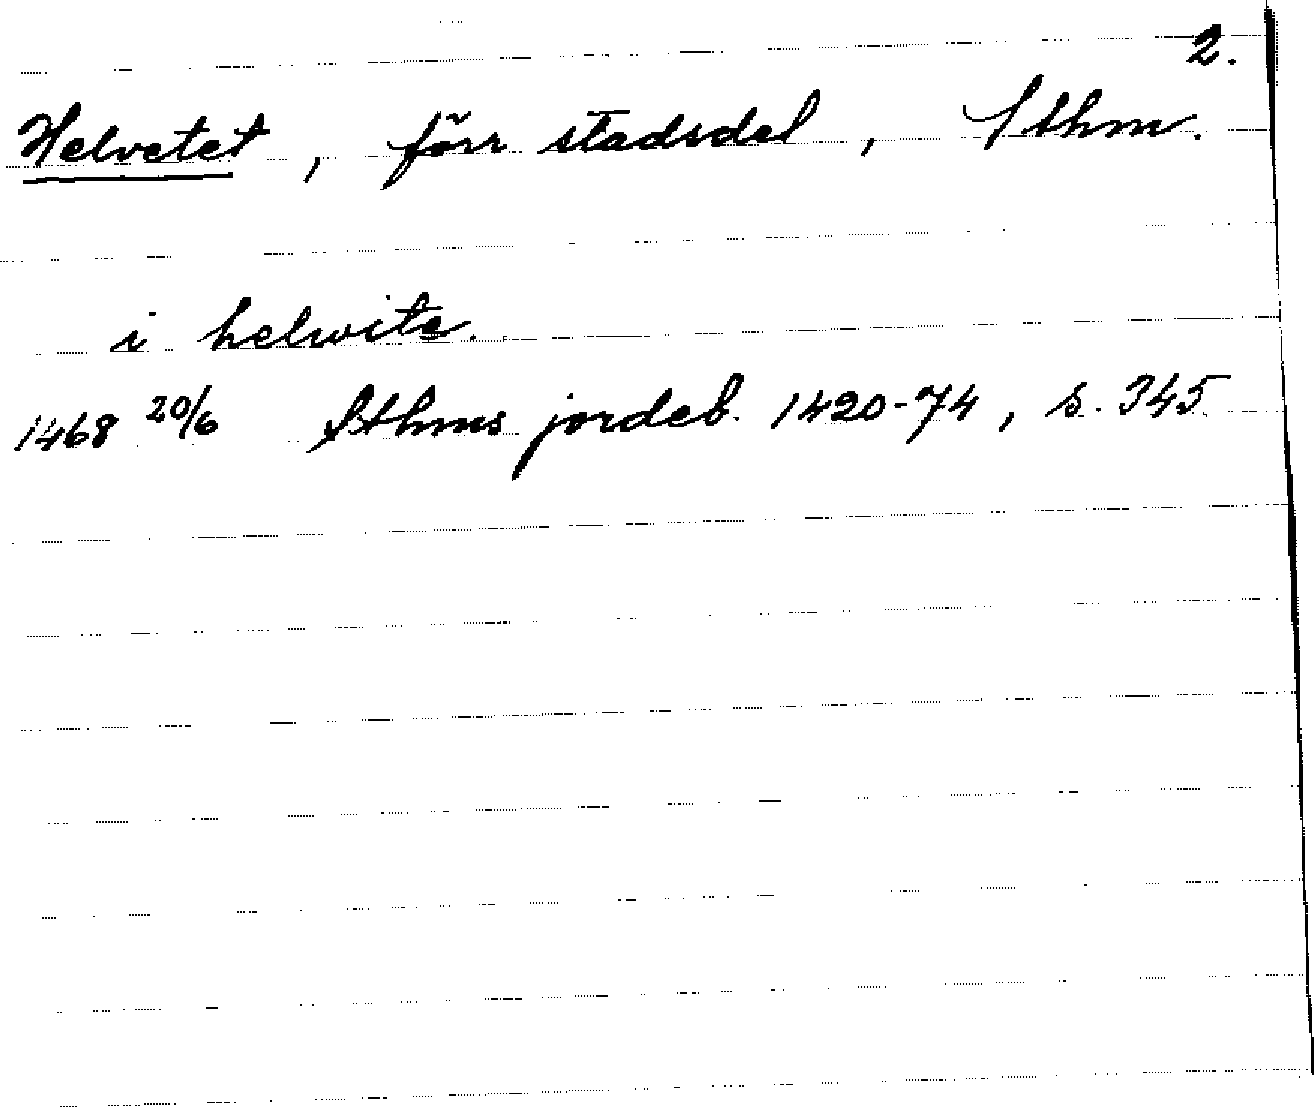 2.
Helvetet, förr stadsdel, Sthm.
i helwite.
1468 20/6 Sthms jordeb. 1420-74, s. 345